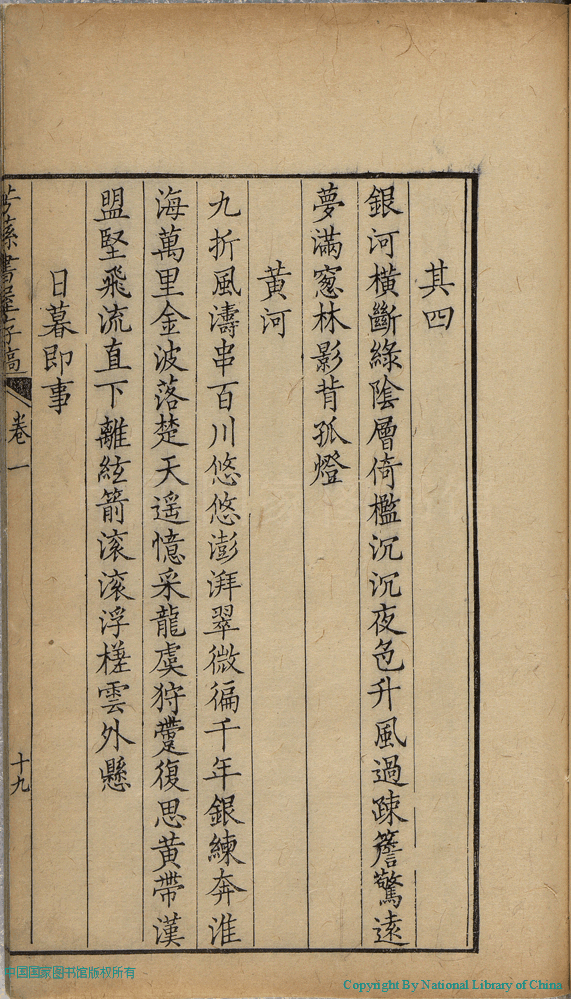 其四
銀河橫斷綠陰層倚檻沉沉夜色升風過疎簷驚遠
夢滿窓林影背孤燈
黄河
九折風濤串百川悠悠澎湃翠微徧千年銀練奔淮
海萬里金波落楚天遥憶采龍虞狩復思黄帶漢
盟堅飛流直下離絃箭滚滚浮槎雲外懸
日暮即事
蓀書屋存稿
卷一
十九
中国国家图书馆版权所有
Copyright By National Library of China